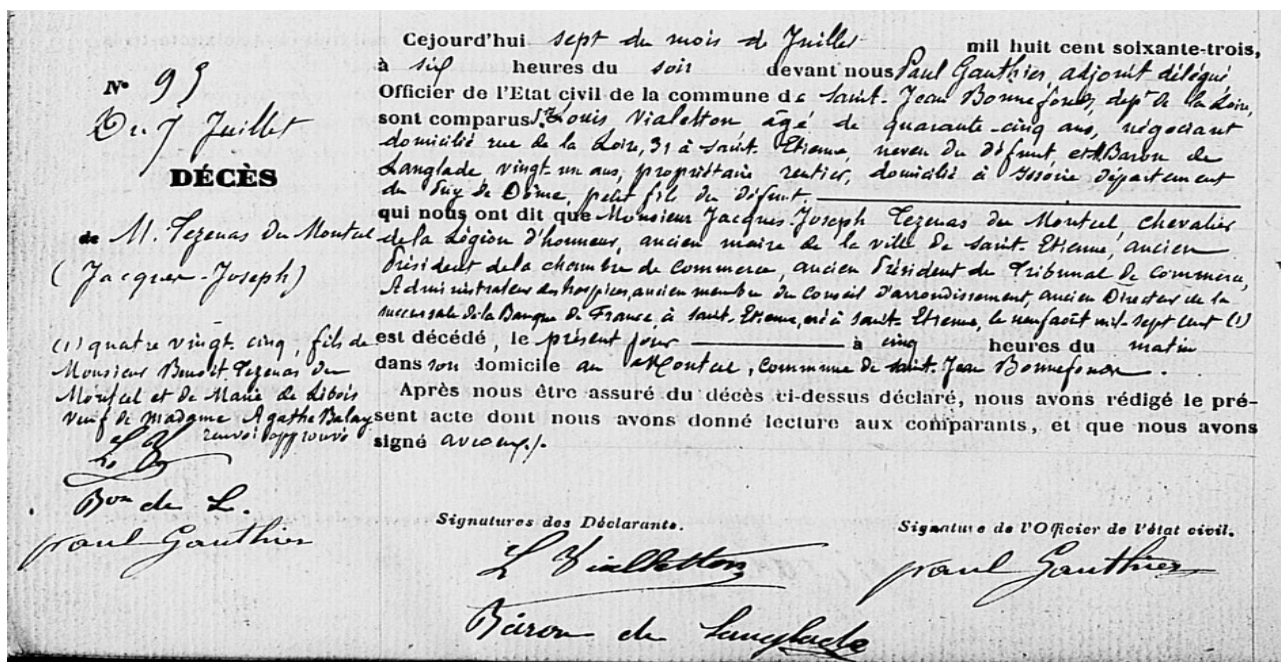 N° 95
Du 7 Juillet
DÉCÈS
de M. Tezenas du Montcel
(Jacques-Joseph)
(1) quatre vingt cinq, fils de
Monsieur Benoit Tezenas du
Montcel et de Marie de Libois
veuf de madame Agathe Balay
renvoi approuvé
L V
Bon de L.
paul Gauthier
Cejourd'hui sept du mois de Juillet mil huit cent soixante-trois,
à six heures du soir devant nous Paul Gauthier adjoint délégué
Officier de l'Etat civil de la commune de Saint-Jean Bonnefonds, dépt de la Loire,
sont comparus Louis Vialetton âgé de quarante-cinq ans, négociant
domicilié rue de la Loire, 31 à Saint-Etienne, neveu du défunt, et Baron de
Langlade vingt-un ans, propriétaire rentier, domicilié à Issoire département
du Puy de Dôme, petit fils du défunt.
qui nous ont dit que Monsieur Jacques Joseph Tezenas du Montcel, chevalier
de la Légion d'honneur, ancien maire de la ville de Saint-Etienne, ancien
Président de la chambre de Commerce, ancien Président du Tribunal de Commerce,
Administrateur des hospices, ancien membre du Conseil d'arrondissement, ancien Directeur de la
succursale de la Banque de France à Saint-Etienne, né à Saint-Etienne, le neuf août mil-sept cent (1)
est décédé, le présent jour à cinq heures du matin
dans son domicile au Montcel, Commune de Saint-Jean Bonnefonds.
Après nous être assuré du décès ci-dessus déclaré, nous avons rédigé le pré-
sent acte dont nous avons donné lecture aux comparants, et que nous avons
signé avec eux.
Signatures des Déclarants.
Signature de l'Officier de l'état civil.
L Vialletton
paul Gauthier
Baron de Langlade